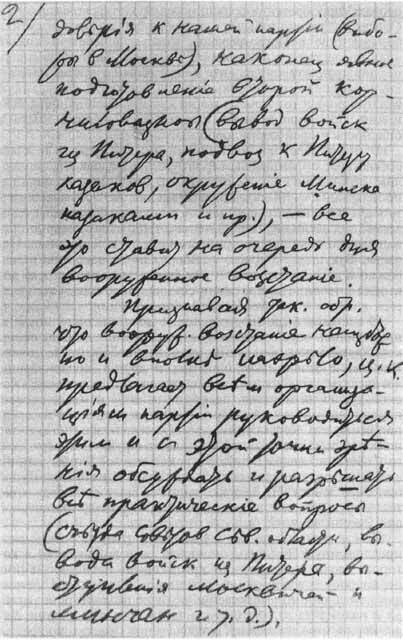 2/
довѣрія к нашей партіи (выбо-
ры в Москвѣ), наконец явное
подготовленіе второй кор-
ниловщины (вывод войск
из Питера, подвоз к Питеру
казаков, окруженіе Минска
казаками и пр.), — все
это ставит на очередь дня
вооруженное возстаніе.
Признавая т. обр.
что вооруж. возстаніе неизбѣж-
но и вполнѣ назрѣло, Ц. К.
предлагает всѣм организа-
ціям партіи руководиться
этим и с этой точки зрѣ-
нія обсуждать и разрѣшать
всѣ практическіе вопросы
(съѣзда совѣтов Сѣв. области, вы-
вода войск из Питера, вы-
ступленія москвичей и
минчан и т. д.).